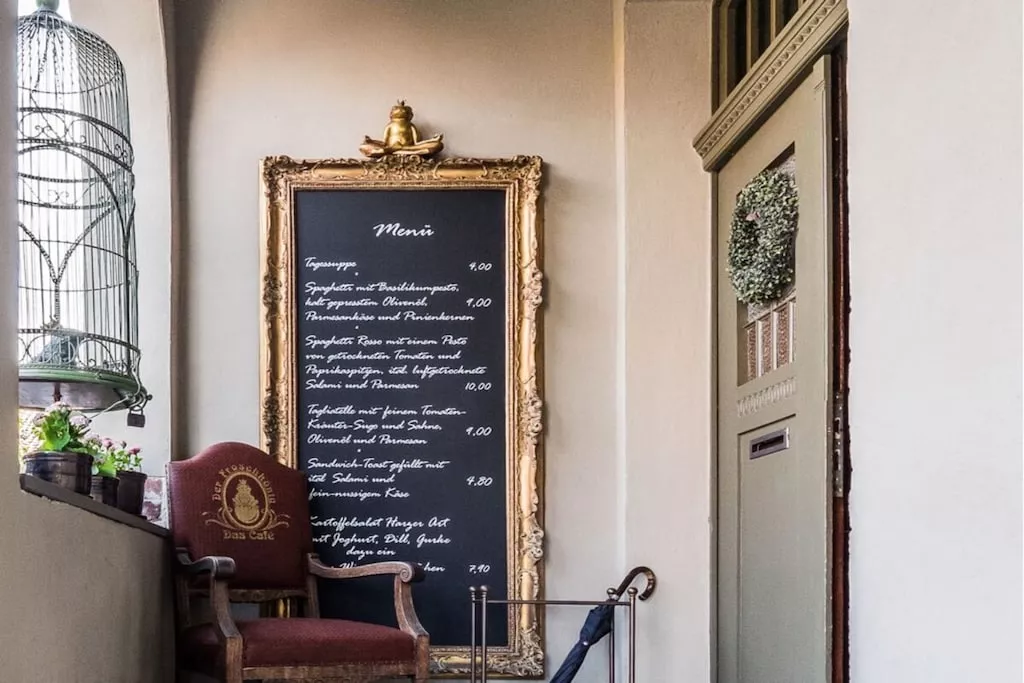 Menü
Tagessuppe 4,00
*
Spaghetti mit Basilikumpesto,
kalt gepresstem Olivenöl, 9,00
Parmesankäse und Pinienkernen
*
Spaghetti Rosso mit einem Pesto
von getrockneten Tomaten und
Paprikaspitzen, ital. luftgetrocknete
Salami und Parmesan 10,00
Tagliatelle mit feinem Tomaten-
Kräuter-Sugo und Sahne, 9,00
Olivenöl und Parmesan
Sandwich-Toast gefüllt mit
ital Salami und 4,80
fein-nussigem Käse
Kartoffelsalat Harzer Art
mit Joghurt, Dill, Gurke
dazu ein
7,90
Der Froschkönig
Das Cafe